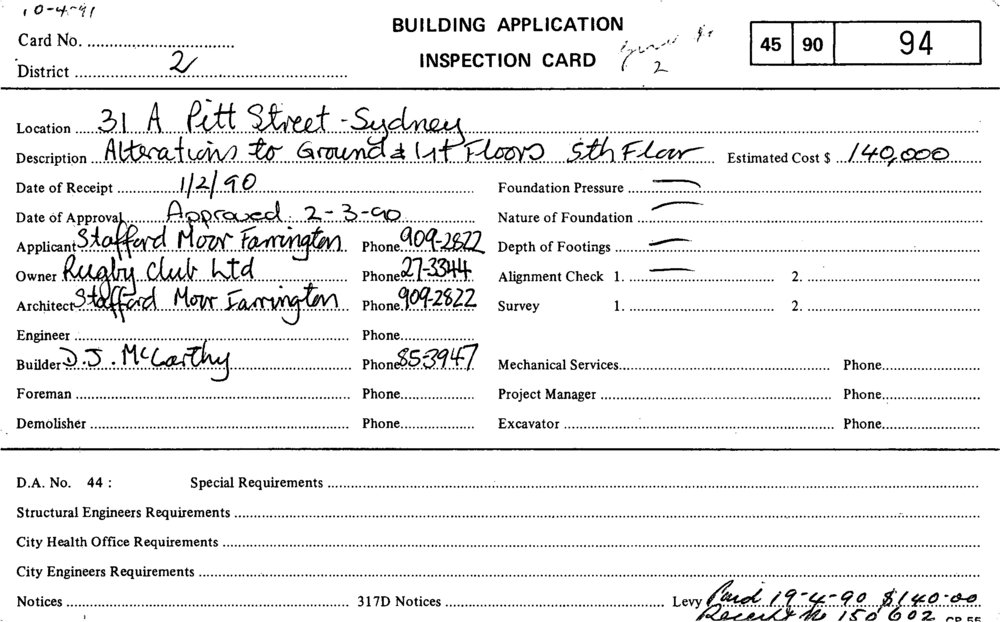 10-4-91
BUILDING APPLICATION
Card No.
45 90 94
INSPECTION CARD
2
District 2
Location 31 A Pitt Street - Sydney
Description Alterations to Ground & 1st Floors 5th Floor Estimated Cost $ 140,000
Date of Receipt 1/2/90 Foundation Pressure —
Date of Approval Approved 2-3-90 Nature of Foundation —
Applicant Stafford Moor Farrington Phone 909-2822 Depth of Footings —
Owner Rugby Club Ltd Phone 27-3344 Alignment Check 1. — 2.
Architect Stafford Moor Farrington Phone 909-2822 Survey 1. 2.
Engineer Phone
Builder D.J. McCarthy Phone 85-3947 Mechanical Services Phone
Foreman Phone Project Manager Phone
Demolisher Phone Excavator Phone
D.A. No. 44 : Special Requirements
Structural Engineers Requirements
City Health Office Requirements
City Engineers Requirements
Notices 317D Notices Levy Paid 19-4-90 $140-00
Receipt No 150602 CP 55